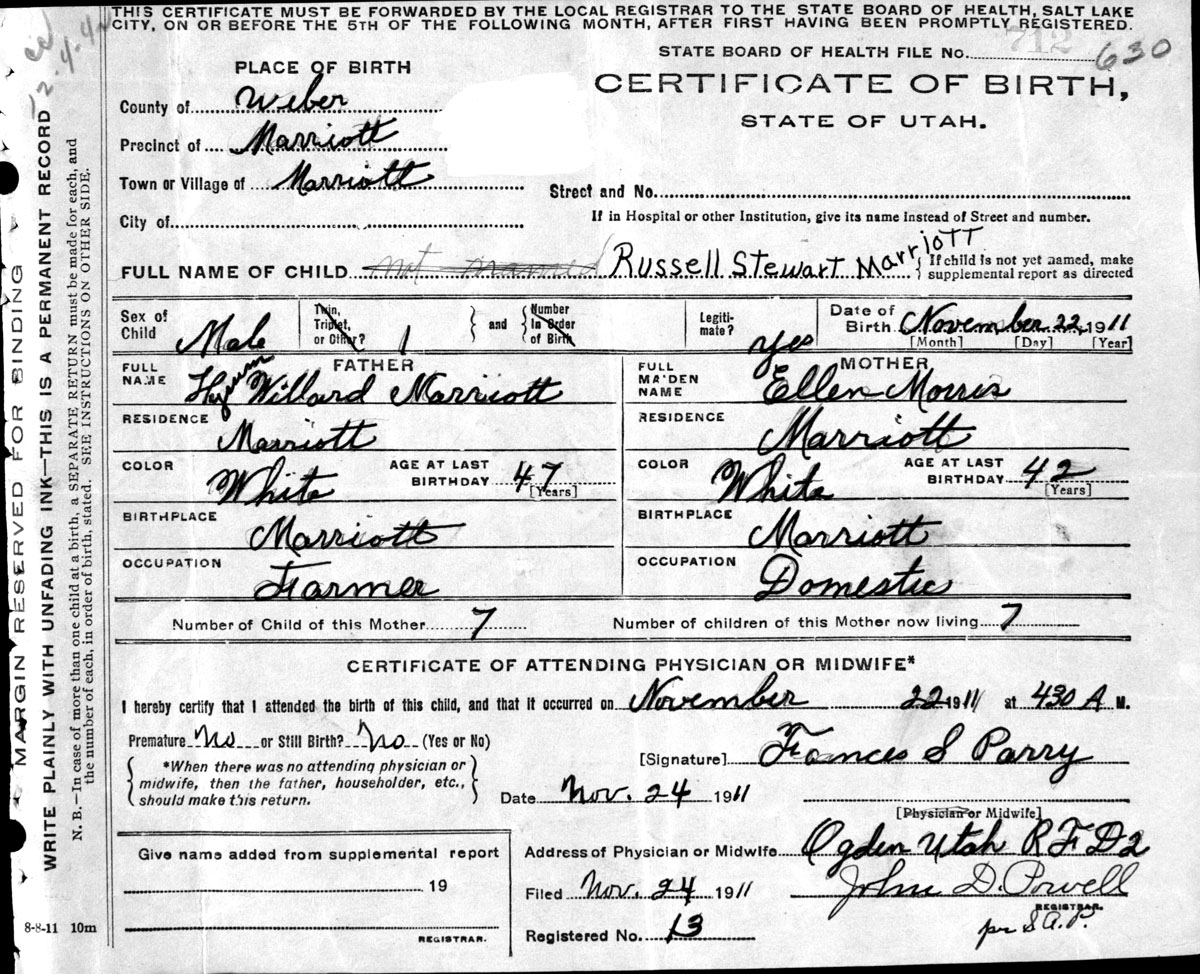 THIS CERTIFICATE MUST BE FORWARDED BY THE LOCAL REGISTRAR TO THE STATE BOARD OF HEALTH, SALT LAKE
CITY, ON OR BEFORE THE 5TH OF THE FOLLOWING MONTH, AFTER FIRST HAVING BEEN PROMPTLY REGISTERED.
STATE BOARD OF HEALTH FILE No. 712 630
PLACE OF BIRTH
CERTIFICATE OF BIRTH,
STATE OF UTAH.
County of Weber
Precinct of Marriott
Town or Village of Marriott
Street and No.
City of
If in Hospital or other Institution, give its name Instead of Street and number.
FULL NAME OF CHILD not named Russell Stewart Marriott { If child is not yet named, make
supplemental report as directed
Sex of Child Male
Twin, Triplet, or Other? 1 } and { Number In Order of Birth
Legiti-mate? yes
Date of Birth November 22, 1911
[Month] [Day] [Year]
FATHER
FULL NAME Hyrum Willard Marriott
RESIDENCE Marriott
COLOR White AGE AT LAST BIRTHDAY 47 [Years]
BIRTHPLACE Marriott
OCCUPATION Farmer
MOTHER
FULL MAIDEN NAME Ellen Morris
RESIDENCE Marriott
COLOR White AGE AT LAST BIRTHDAY 42 [Years]
BIRTHPLACE Marriott
OCCUPATION Domestic
Number of Child of this Mother 7 Number of children of this Mother now living 7
CERTIFICATE OF ATTENDING PHYSICIAN OR MIDWIFE*
I hereby certify that I attended the birth of this child, and that it occurred on November 22 1911 at 430 A M.
Premature No or Still Birth? No (Yes or No)
{ *When there was no attending physician or
midwife, then the father, householder, etc.,
should make this return. }
[Signature] Frances S Parry
Date Nov. 24 1911
[Physician or Midwife]
Give name added from supplemental report
19
REGISTRAR.
Address of Physician or Midwife Ogden Utah R F D 2
Filed Nov. 24 1911 John D. Powell
REGISTRAR.
per S A. P.
Registered No. 13
8-8-11 10m
MARGIN RESERVED FOR BINDING
WRITE PLAINLY WITH UNFADING INK—THIS IS A PERMANENT RECORD
N. B.—In case of more than one child at a birth, a SEPARATE RETURN must be made for each, and
the number of each, in order of birth, stated. SEE INSTRUCTIONS ON OTHER SIDE.